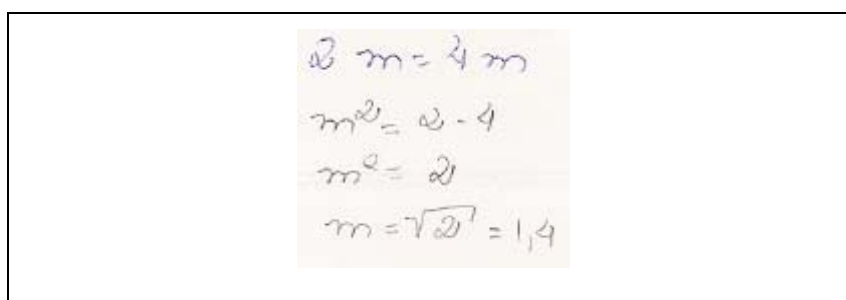 2 m = 4 m
m² = 2 - 4
m² = 2
m = √2 = 1,4